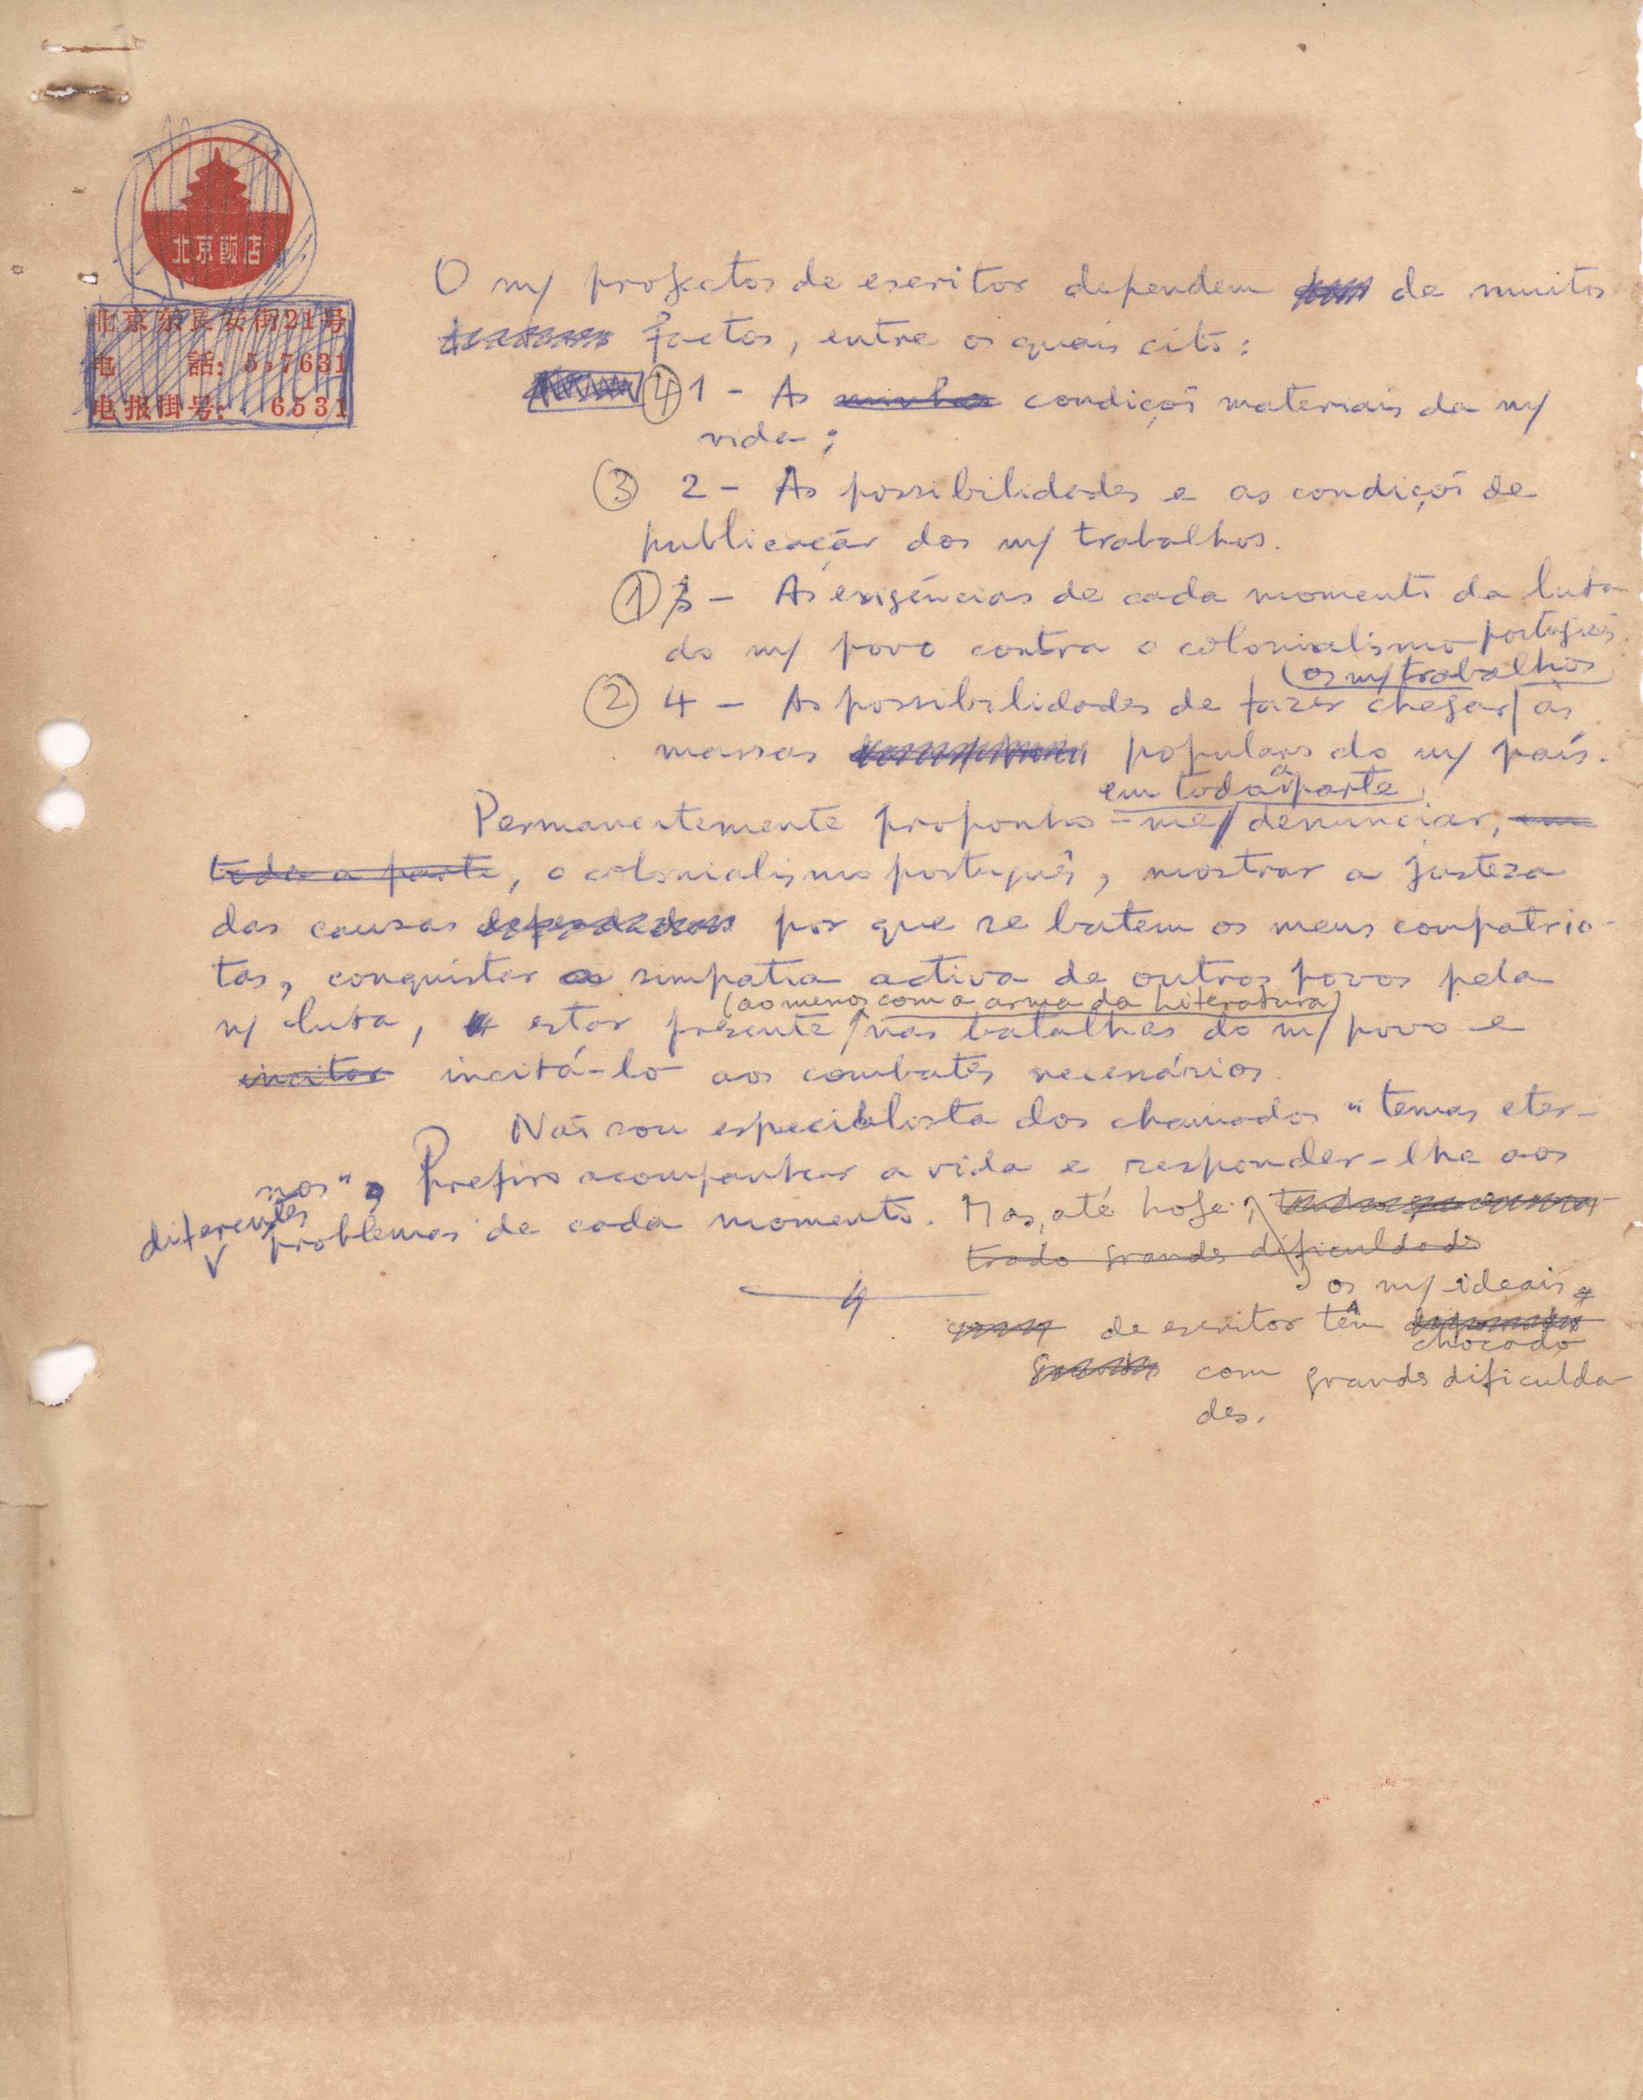 北京飯店
北京东長安街21号
电 話: 5.7631
电报掛号: 6531
O m/ projectos de escritor dependem de muitos
factos, entre os quais cito:
④ 1 - As minhas condições materiais da m/
vida;
③ 2 - As possibilidades e as condições de
publicação dos m/ trabalhos.
① 3 - As exigências de cada momento da luta
do m/ povo contra o colonialismo português.
(os m/ trabalhos)
② 4 - As possibilidades de fazer chegar às
massas populares do m/ país.
em toda a parte,
Permanentemente proponho-me denunciar, em
toda a parte, o colonialismo português, mostrar a justeza
das causas defendidas por que se batem os meus compatrio-
tas, conquistar a simpatia activa de outros povos pela
(ao menos com a arma da literatura)
m/ luta, estar presente nas batalhas do m/ povo e
incitar incitá-lo aos combates necessários.
Não sou especialista dos chamados "temas eter-
nos". Prefiro acompanhar a vida e responder-lhe aos
diferentes problemas de cada momento. Mas, até hoje,
trado grandes dificuldades
os m/ ideais
de escritor têm
chocado
com grandes dificulda
des.